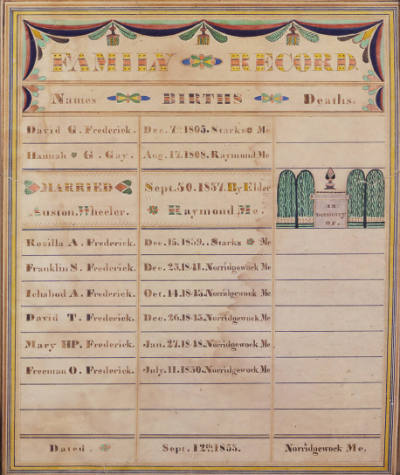 FAMILY RECORD
Names BIRTHS Deaths.
David G. Frederick. Dec. 7th 1805. Starks Me
Hannah G. Gay. Aug.17.1808. Raymond Me
MARRIED Sept.30.1837. By Elder
Auston.Wheeler. Raymond.Me.
IN
memory
OF.
Rozilla A. Frederick. Dec.15.1839. Starks Me
Franklin S. Frederick. Dec.25.1841. Norridgewock Me
Ichabod A. Frederick. Oct.14.1843. Norridgewock Me
David T. Frederick. Dec.26.1845. Norridgewock Me
Mary HP. Frederick. Jan.27.1848. Norridgewock Me
Freeman O. Frederick. July.11.1850. Norridgewock Me
Dated. Sept. 12th Norridgewock Me.